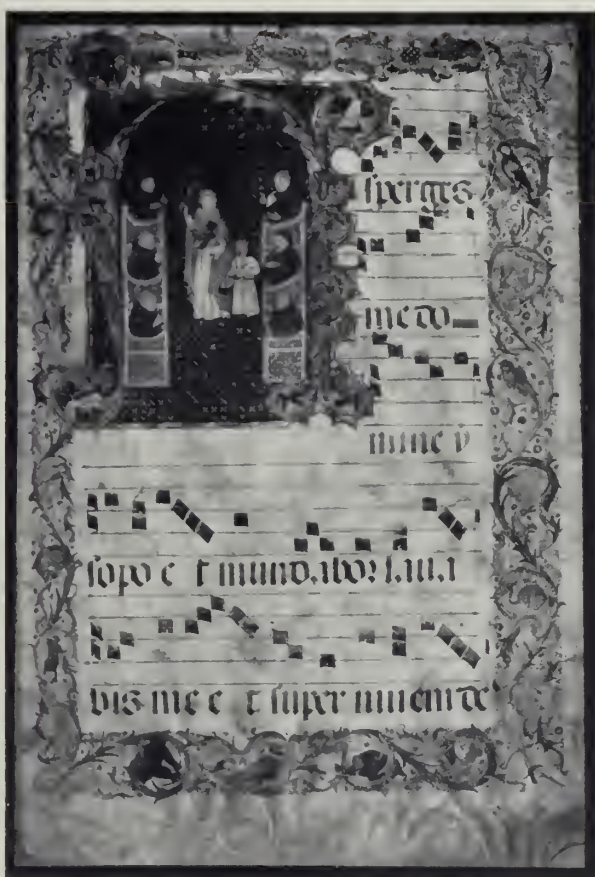 sperges
me do
mine y
sopo e t mundabor laua
bis me e t super niuem de